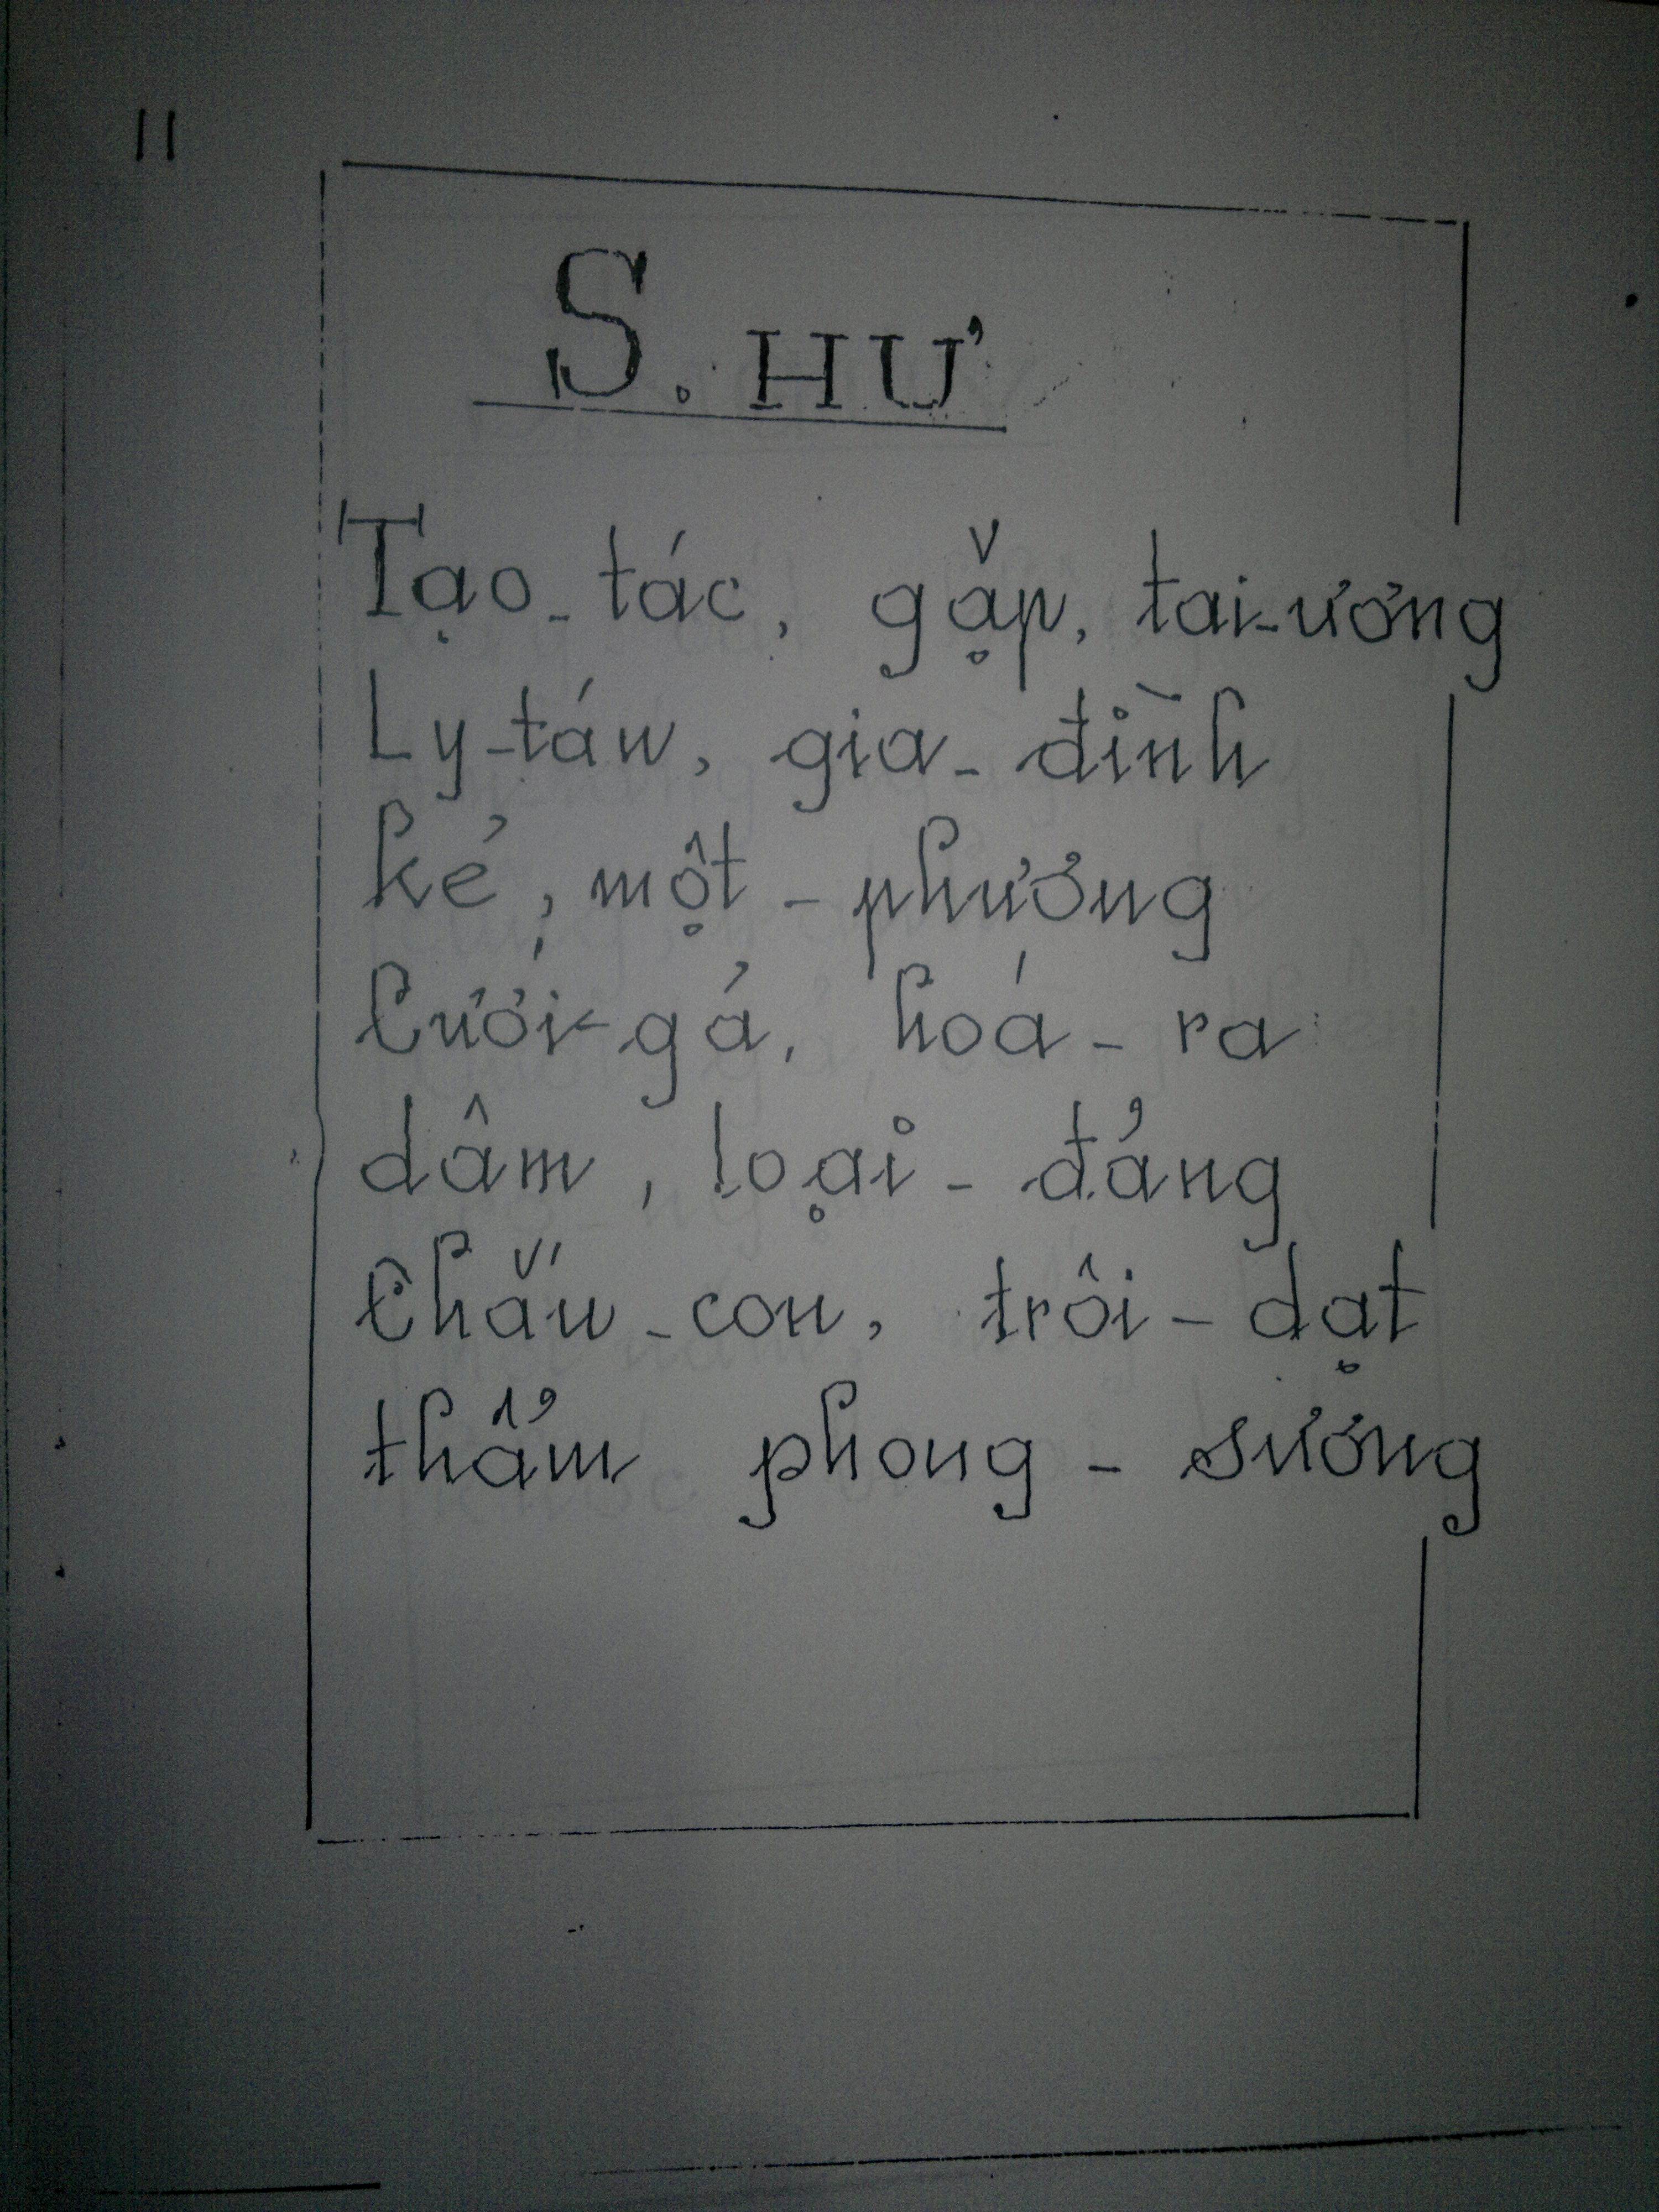 11
S. HƯ
Tạo-tác, gặp, tai-ương
Ly-tán, gia-đình
kẻ, một-phương
Cưới-gả, hoá-ra
dâm, loại-đảng
Chắn-con, trôi-dạt
thẩm phong-sương